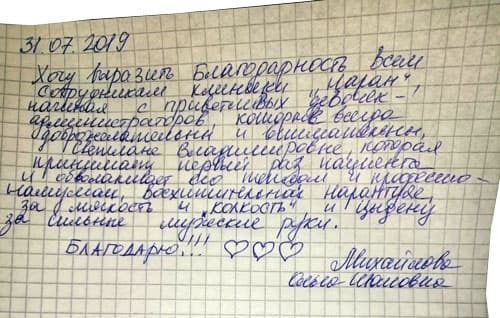 31.07.2019
Хочу выразить Благодарность Всем
Сотрудникам клиники "Наран",
начиная с приветливых девочек-
администраторов, которые всегда
доброжелательны и внимательны,
Светлане Владимировне, которая
принимает первый раз пациента
и обволакивает его теплом и профессио-
нализмом, Восхитительной Нарангуве,
за мягкость и "колкость" и Цыдену
за сильные мужские руки.
Благодарю!!! ♡♡♡
Михайлова
Ольга